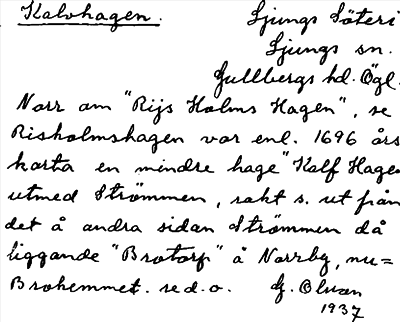 Kalvhagen. Ljungs Säteri
Ljungs sn.
Gullbergs hd. Ögl.
Norr om "Rijs Holms Hagen", se
Risholmshagen var enl. 1696 års
karta en mindre hage "Kalf Hagen
utmed Strömmen, rakt s. ut från
det å andra sidan Strömmen då
liggande "Brotorp" å Norrby, nu=
Brohemmet. se d. o. G. Olsson
1937